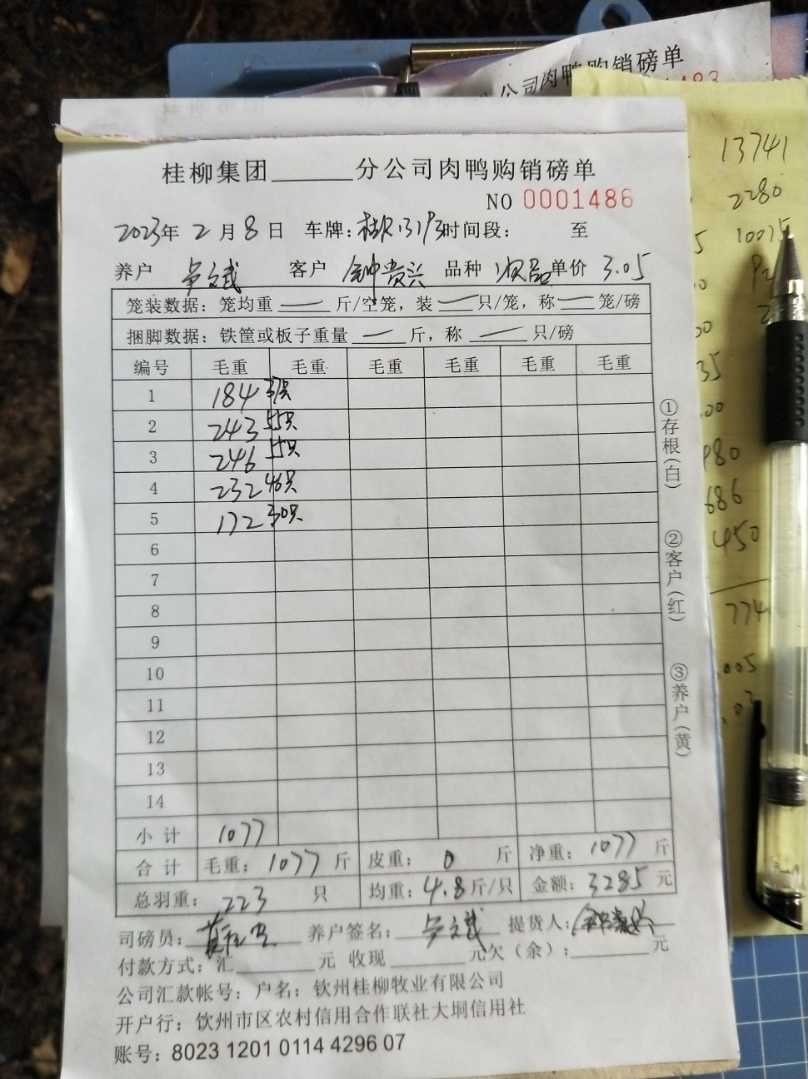 公司肉鸭购销磅单
1483
桂柳集团______分公司肉鸭购销磅单
NO 0001486
2023年 2 月 8 日 车牌: 时间段: 至
养户 客户 钟贵兴 品种 次品 单价 3.05
笼装数据: 笼均重 — 斤/空笼, 装 — 只/笼, 称 — 笼/磅
捆脚数据: 铁筐或板子重量 — 斤, 称 — 只/磅
编号 毛重 毛重 毛重 毛重 毛重 毛重
1 184 37只
2 243 55只
3 246 55只
4 232 46只
5 172 30只
6
7
8
9
10
11
12
13
14
小计 1077
合计 毛重: 1077 斤 皮重: 0 斤 净重: 1077 斤
总羽重: 223 只 均重: 4.8 斤/只 金额: 3285 元
司磅员: 养户签名: 提货人:
付款方式: 汇______元 收现______元欠（余）:______元
公司汇款帐号: 户名: 钦州桂柳牧业有限公司
开户行: 钦州市区农村信用合作联社大垌信用社
账号: 8023 1201 0114 4296 07
①存根(白)
②客户(红)
③养户(黄)
13741
2280
10075
35
00
980
686
450
774
.005